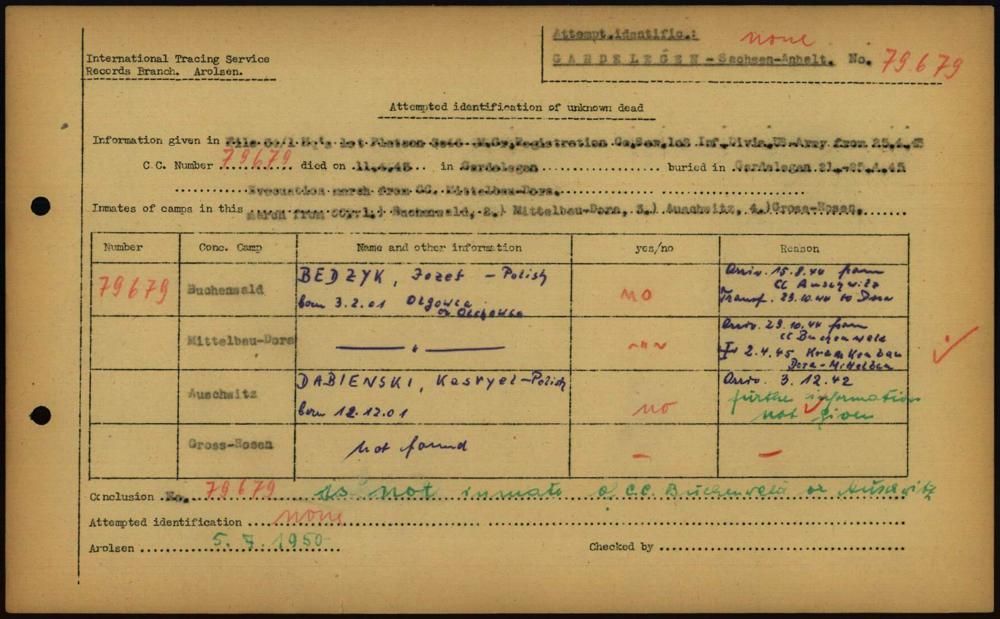 Attempt.identific.: none
International Tracing Service
GARDELEGEN-Sachsen-Anhalt. No. 79679
Records Branch. Arolsen.
Attempted identification of unknown dead
Information given in File Registration Co, Inf. US-Army from
C.C. Number 79679 died on 11.4.45 in Gardelegen buried in Gardelegen 21.-25.4.45
Evacuation march from CC. Mittelbau-Dora.
Inmates of camps in this march from 1.) Buchenwald, 2.) Mittelbau-Dora, 3.) Auschwitz, 4.)Gross-Rosen.
Number Conc. Camp Name and other information yes/no Reason
79679 Buchenwald BEDZYK, Jozef - Polish no Arriv. 15.8.44 from
born 3.2.01 CC Auschwitz
Transf. 29.10.44 to Dora
Mittelbau-Dora — " — Arriv. 29.10.44 from
CC Buchenwald
2.4.45 Krankenbau
Dora-Mittelbau
Auschwitz DABIENSKI, - Polish no Arriv. 3.12.42
born 12.12.01 further information
not given
Gross-Rosen not found — —
Conclusion No. 79679 is not inmate of CC. Buchenwald or Auschwitz
Attempted identification none
Arolsen 5.7.1950 Checked by